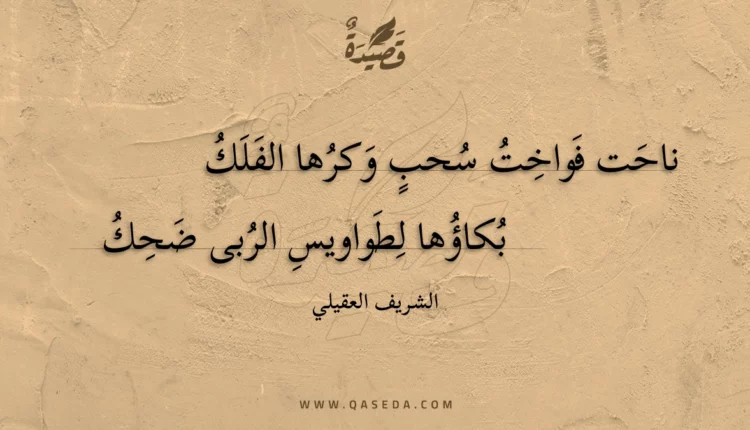 قَصِيدَةٌ
ناحَت فَواخِتُ سُحبٍ وَكرُها الفَلَكُ
بُكاؤُها لِطَواويسِ الرُبى ضَحِكُ
الشريف العقيلي
WWW.QASEDA.COM